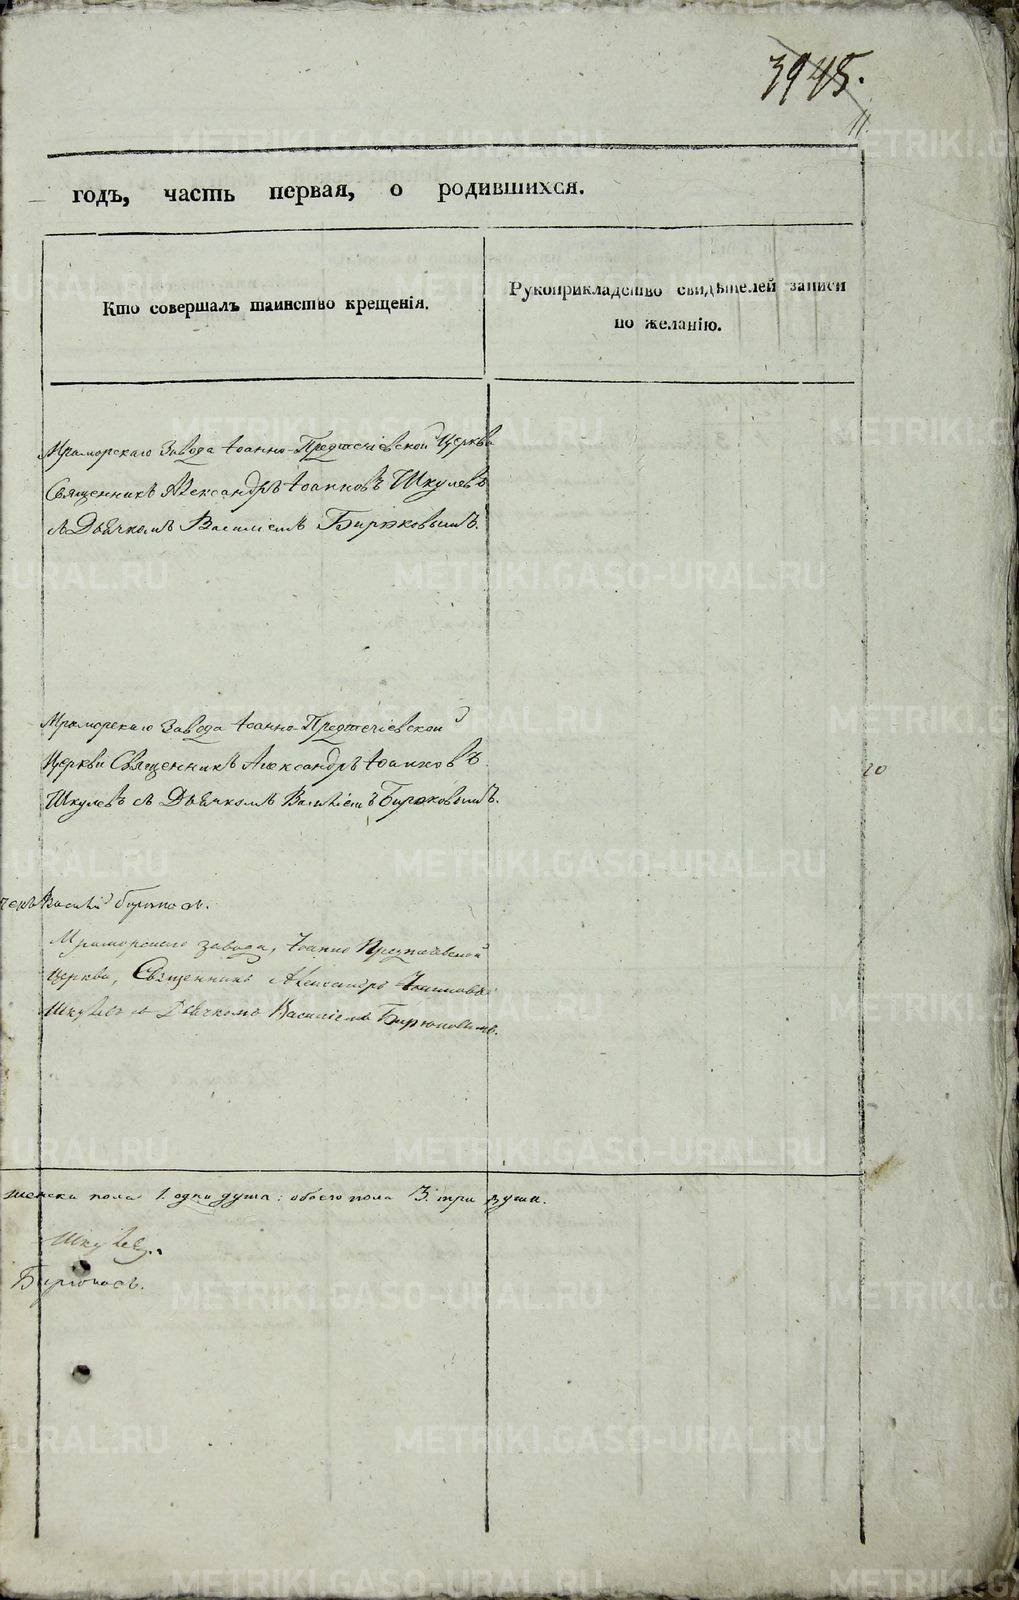 3945.
11
годъ, часть первая, о родившихся.
Кто совершалъ таинство крещенія.
Рукоприкладство свидѣтелей записи
по желанію.
Мраморскаго Завода Іоанно-Предтечіевской Церкви
Священникъ Александръ Іоанновъ Шкулевъ
съ Дьячкомъ Василіемъ Бирюковымъ.
Мраморскаго Завода Іоанно-Предтечіевской
Церкви Священникъ Александръ Іоанновъ
Шкулевъ съ Дьячкомъ Василіемъ Бирюковымъ.
20
Василій Бирюковъ.
Мраморскаго завода, Іоанно Предтечевской
Церкви, Священникъ Александръ Іоанновъ
Шкулевъ съ Дьячкомъ Василіемъ Бирюковымъ.
женска пола 1. одна душа: обоего пола 3. три души.
Шкулев.
Бирюковъ.
METRIKI.GASO-URAL.RU